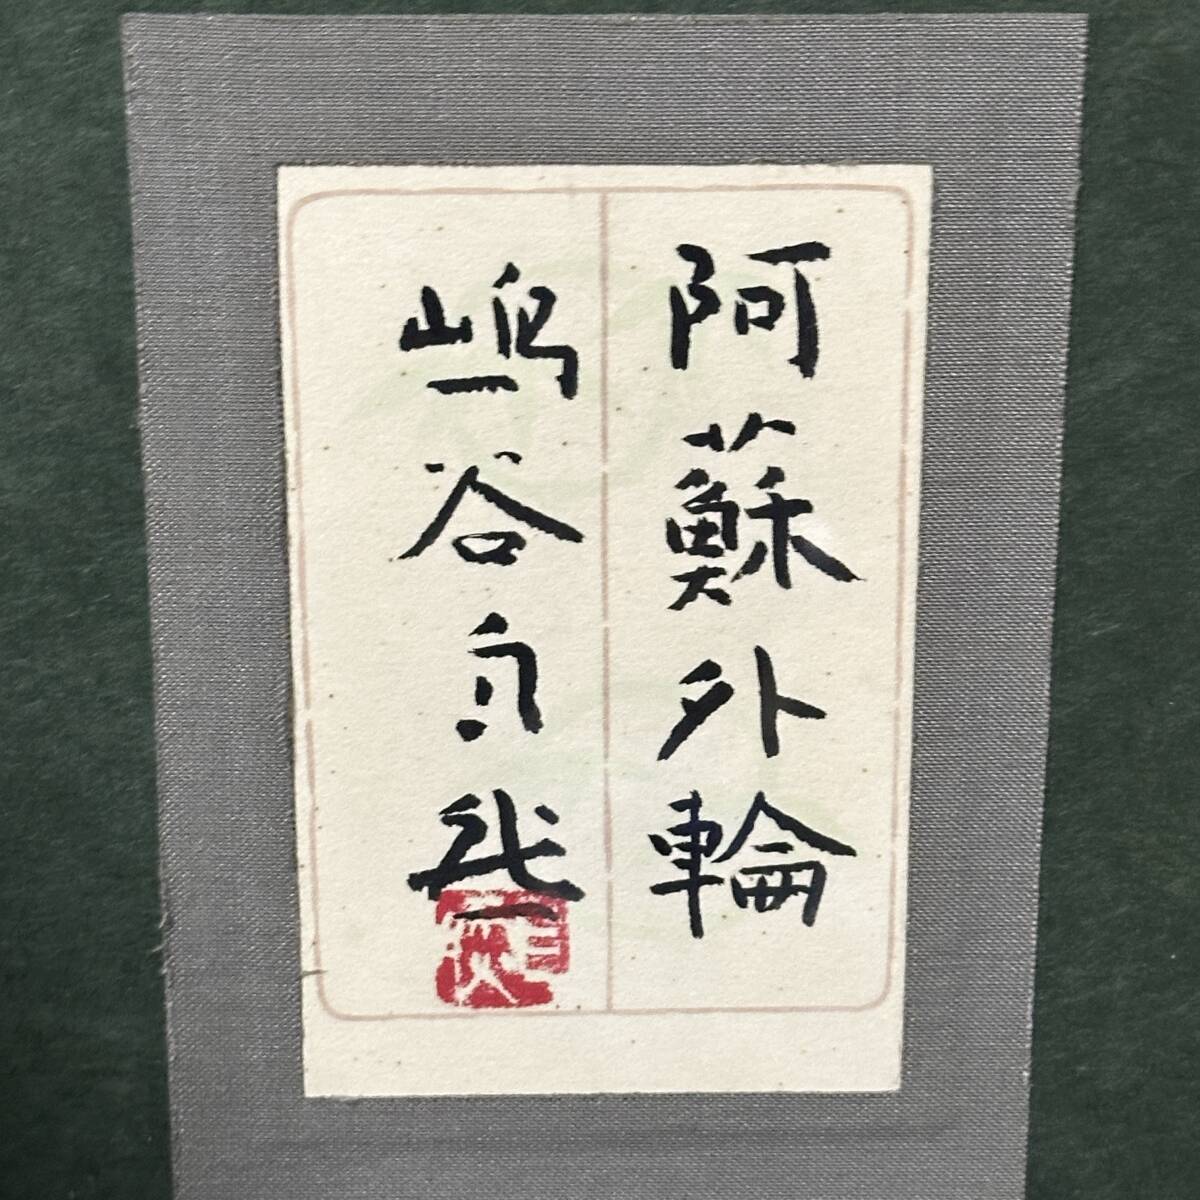 阿蘇外輪
嶋谷自然